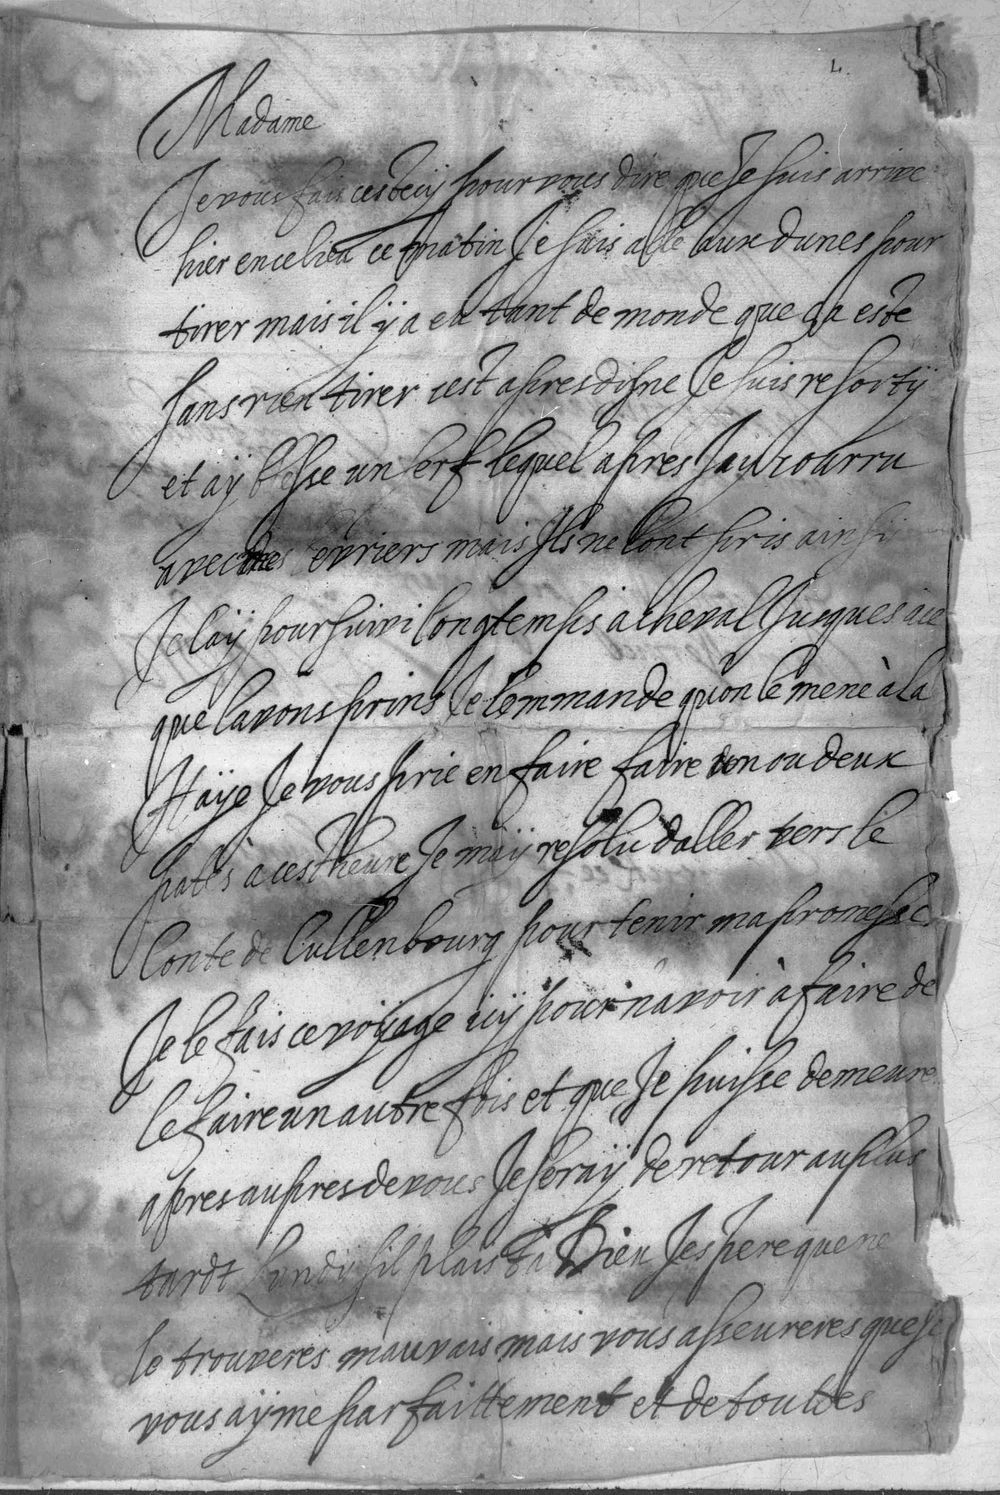 4.
Madame
Je vous fais cestecy pour vous dire que Je suis arrive
hier en ce lieu ce matin Je suis alle aux dunes pour
tirer mais il ÿ a eu tant de monde que ca este
sans rien tirer cest apres disne Je suis resortÿ
et aÿ blesse un cerf lequel apres Jay courru
avec des levriers mais Ils ne lont pris ainsi
Je laÿ poursuivi longtemps a cheval Jusques a ce
que lavons prins Je lemmande quon le mene à la
Haÿe Je vous prie en faire faire un ou deux
patés à cest heure Je maÿ resolu daller vers le
Conte de Cullenbourg pour tenir ma promesse
Je le fais ce voÿage icÿ pour navoir à faire de
le faire un autre fois et que Je puisse demeure
apres aupres de vous Je seraÿ de retour au plus
tardt Lundÿ sil plaist a Dieu Jespere que ne
le trouveres mauvais mais vous asseureres que Je
vous aÿme parfaittement et de touttes